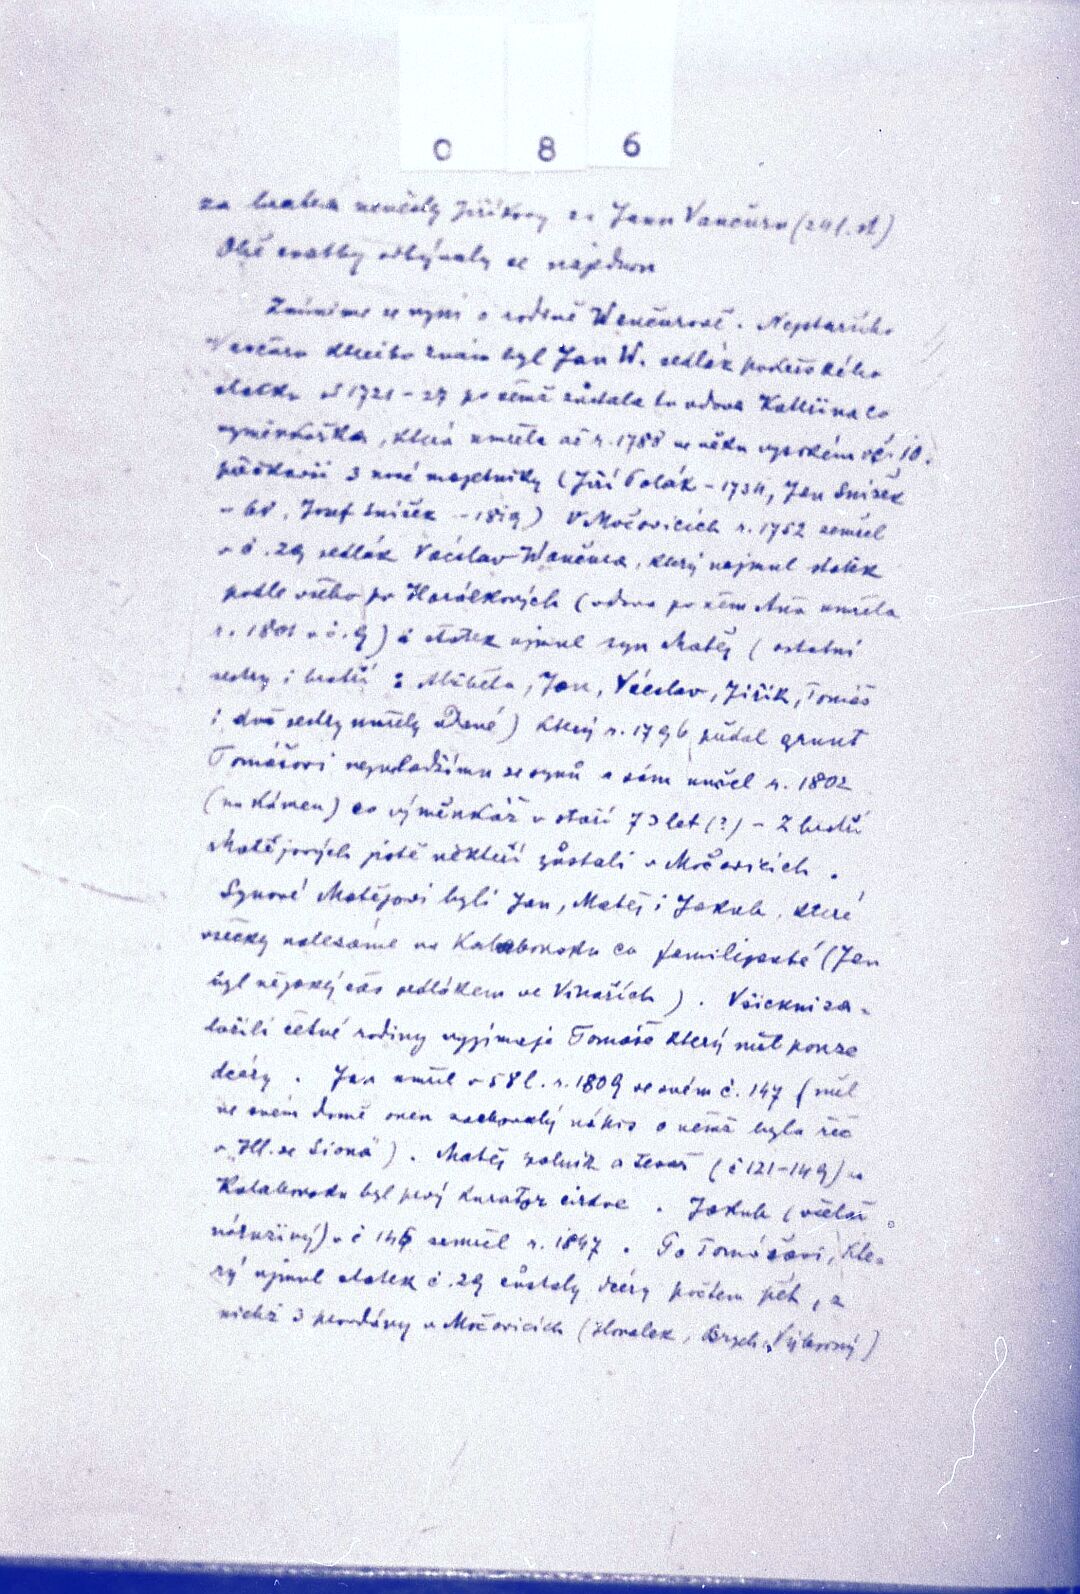 0 8 6
za bratra nevěsty Jiříkovy za Jana Vančuru (24 l. st.)
Obě svatby odbývaly se najednou
Zmíníme se nyní o rodině Wančurově. Nejstarším
Vančuru kterého znám byl Jan W. sedlák
statku od 1721-27 po němž zůstala tu vdova Kateřina co
výměnkářka, která umřela až r. 1788 ve věku vysokém
3 nové majetníky (Jiří Polák - 1734, Jan Snížek
- 68, Josef Snížek - 1819) V Močovicích r. 1752 zemřel
v č. 29 sedlák Václav Wančura, který najmul statek
podle všeho po Horálkových (vdova po něm Anna umřela
r. 1801 v č. 9) a statek ujmul syn Matěj (ostatní
sestry i bratří: Alžběta, Jan, Václav, Jiřík, Tomáš
i dvě sestry umřely) který r. 1796 pustil grunt
Tomášovi nejmladšímu ze synů a sám umřel r. 1802
(na kámen) co výměnkář v stáří 73 let (?) - Z bratří
Matějových jistě někteří zůstali v Močovicích.
Synové Matějovi byli Jan, Matěj i Jakub, které
všecky nalezáme na Kalabousku co familianté (Jan
byl nějaký čas sedlákem ve Vinařích). Všickni za-
ložili četné rodiny vyjímaje Tomáše který měl pouze
dcery. Jan umřel v 58 l. r. 1809 ve svém č. 147 (měl
ve svém domě onen nápis o němž byla řeč
v „Hl. ze Siona"). Matěj rolník a tesař (č 121-149) na
Kalabousku byl prvý kurator církve. Jakub (včelař
náruživý) v č 145 zemřel r. 1847. Po Tomášovi, kte-
rý ujmul statek č. 29 zůstaly dcery počtem pět, z
nichž 3 provdány v Močovicích (Horálek, Brych, Výborný)